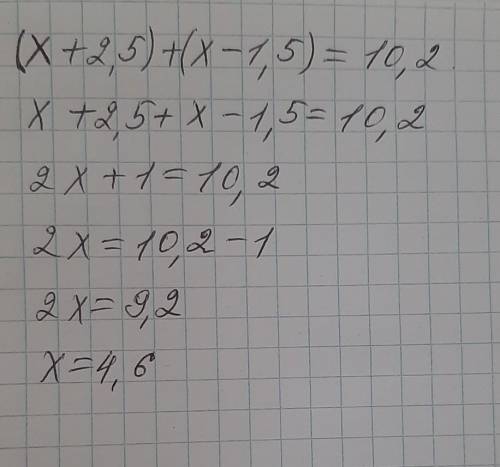 (x+2,5)+(x-1,5)=10,2.
x+2,5+x-1,5=10,2
2x+1=10,2
2x=10,2-1
2x=9,2
x=4,6